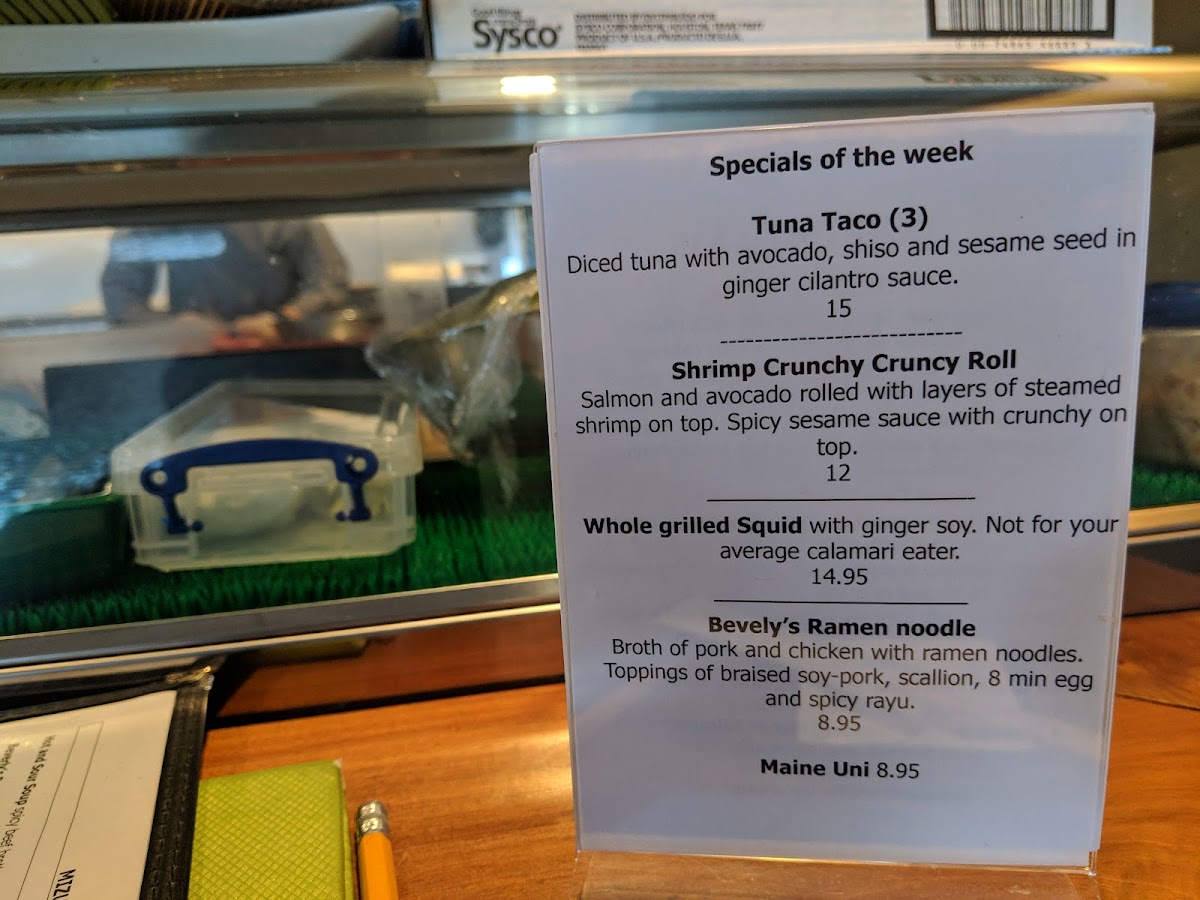 Sysco
Specials of the week
Tuna Taco (3)
Diced tuna with avocado, shiso and sesame seed in
ginger cilantro sauce.
15
Shrimp Crunchy Cruncy Roll
Salmon and avocado rolled with layers of steamed
shrimp on top. Spicy sesame sauce with crunchy on
top.
12
Whole grilled Squid with ginger soy. Not for your
average calamari eater.
14.95
Bevely's Ramen noodle
Broth of pork and chicken with ramen noodles.
Toppings of braised soy-pork, scallion, 8 min egg
and spicy rayu.
8.95
Maine Uni 8.95
Hot and Sour Soup spicy beef